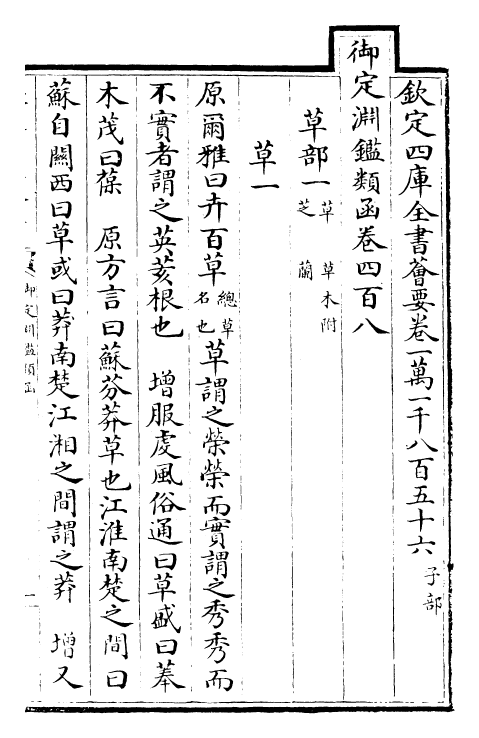 欽定四庫全書薈要卷一萬一千八百五十六 子部
御定淵鑑類函卷四百八
草部一 草 草木附 芝 蘭
草一
原爾雅曰卉百草 總草名也 草謂之榮榮而實謂之秀秀而
不實者謂之英荄根也 增服虔風俗通曰草盛曰菶
木茂曰葆 原方言曰蘇芬莽草也江淮南楚之間曰
蘇自關西曰草或曰莽南楚江湘之間謂之莽 增又
御定淵鑑類函
一